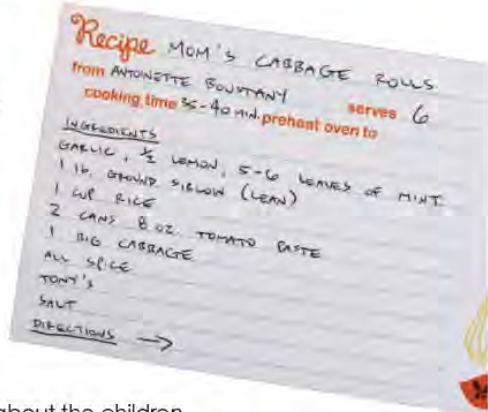 Recipe MOM'S CABBAGE ROLLS
from ANTOINETTE BOUSTANY serves 6
cooking time 35-40 MIN. preheat oven to
INGREDIENTS
GARLIC, ½ LEMON, 5-6 LEAVES OF MINT
1 lb. GROUND SIRLOIN (LEAN)
1 CUP RICE
2 CANS 8 OZ. TOMATO PASTE
1 BIG CABBAGE
ALL SPICE
TONY'S
SALT
DIRECTIONS →
about the children